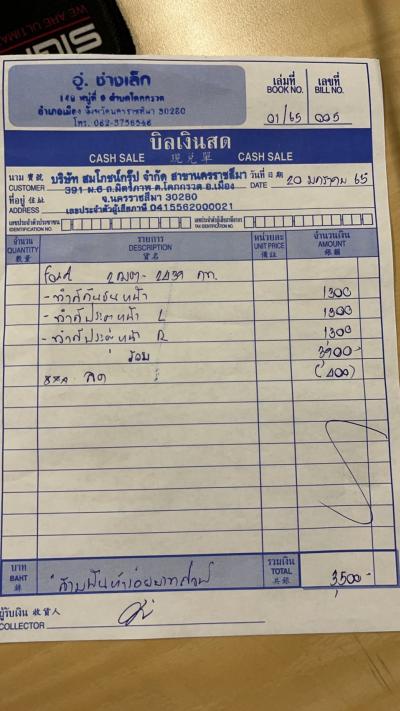 WE ARE ULTIMA
อู่ ช่างเล็ก
149 หมู่ที่ 9 ตำบลโคกกรวด
อำเภอเมือง จังหวัดนครราชสีมา 30280
โทร. 062-3756546
เล่มที่ เลขที่
BOOK NO. BILL NO.
01/65 005
บิลเงินสด
CASH SALE 現兌單 CASH SALE
นาม 寶號 บริษัท สมโภชน์กรุ๊ป จำกัด สาขานครราชสีมา วันที่ 日期 20 มกราคม 65
CUSTOMER 391 ม.6 ถ.มิตรภาพ ต.โคกกรวด อ.เมือง DATE
ที่อยู่ 住址 จ.นครราชสีมา 30280
ADDRESS เลขประจำตัวผู้เสียภาษี 0415562000021
เลขประจำตัวประชาชน เลขประจำตัวผู้เสียภาษีอากร
IDENTIFICATION NO. TAX IDENTIFICATION NO.
จำนวน รายการ หน่วยละ จำนวนเงิน
QUANTITY DESCRIPTION UNIT PRICE AMOUNT
數量 貨名 備註 銀額
Ford 2439 กท.
- ทำสีกันชนหน้า 1300
- ทำสีประตูหน้า L 1300
- ทำสีประตูหน้า R 1300
รวม 3900
ลด (400)
บาท รวมเงิน
BAHT TOTAL
銖 共銀
สามพันห้าร้อยบาทถ้วน 3,500 -
ผู้รับเงิน 收貨人
COLLECTOR